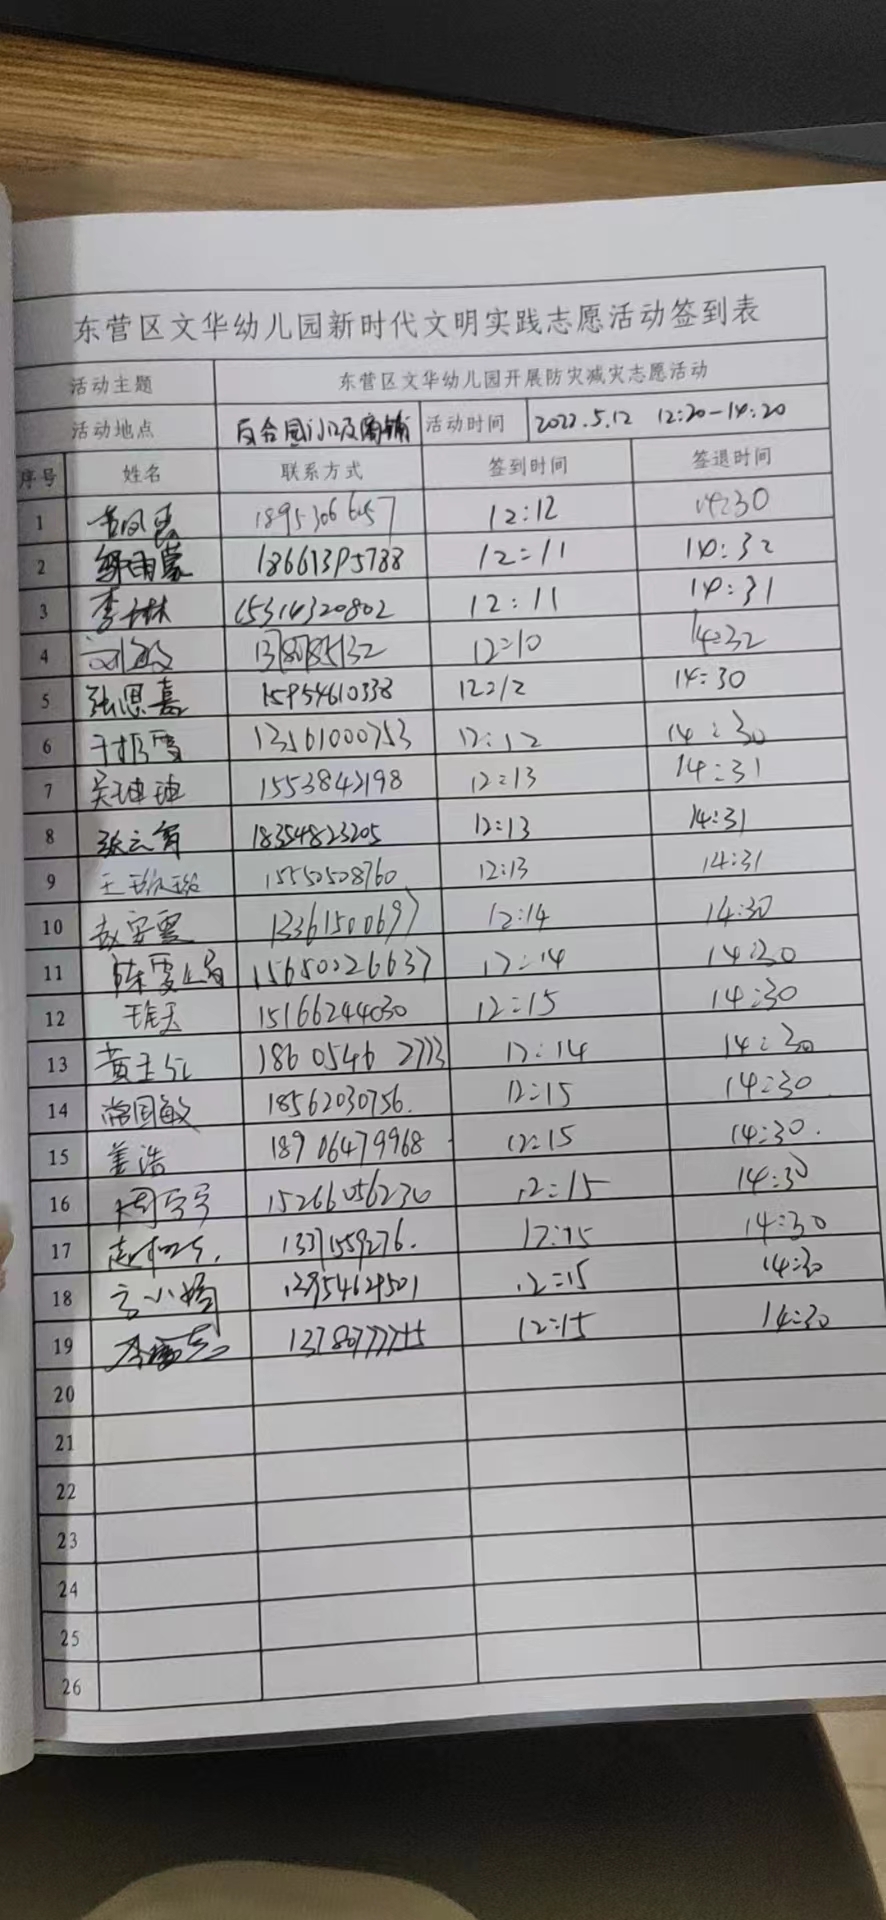 东营区文华幼儿园新时代文明实践志愿活动签到表
活动主题 东营区文华幼儿园开展防灾减灾志愿活动
活动地点 百合园小区及商铺 活动时间 2022.5.12 12:20-14:20
序号 姓名 联系方式 签到时间 签退时间
1 12:12 14:30
2 18661395788 12:11 14:32
3 李 林 15314320802 12:11 14:31
4 刘 12:10 14:32
5 张思嘉 15954610338 12:12 14:30
6 13561000753 12:12 14:30
7 吴珅珅 1553842198 12:13 14:31
8 张云霄 18354823205 12:13 14:31
9 王 15550508760 12:13 14:31
10 赵安霞 13361500697 12:14 14:30
11 陈雯 15650226637 12:14 14:30
12 15166244030 12:15 14:30
13 黄玉红 1860546 2773 12:14 14:30
14 常国敏 18562030756. 12:15 14:30
15 姜浩 18906479968 12:15 14:30.
16 周宁宁 15266056230 12:15 14:30
17 赵 13371559276. 12:15 14:30
18 小娟 12:15 14:30
19 12:15 14:30
20
21
22
23
24
25
26